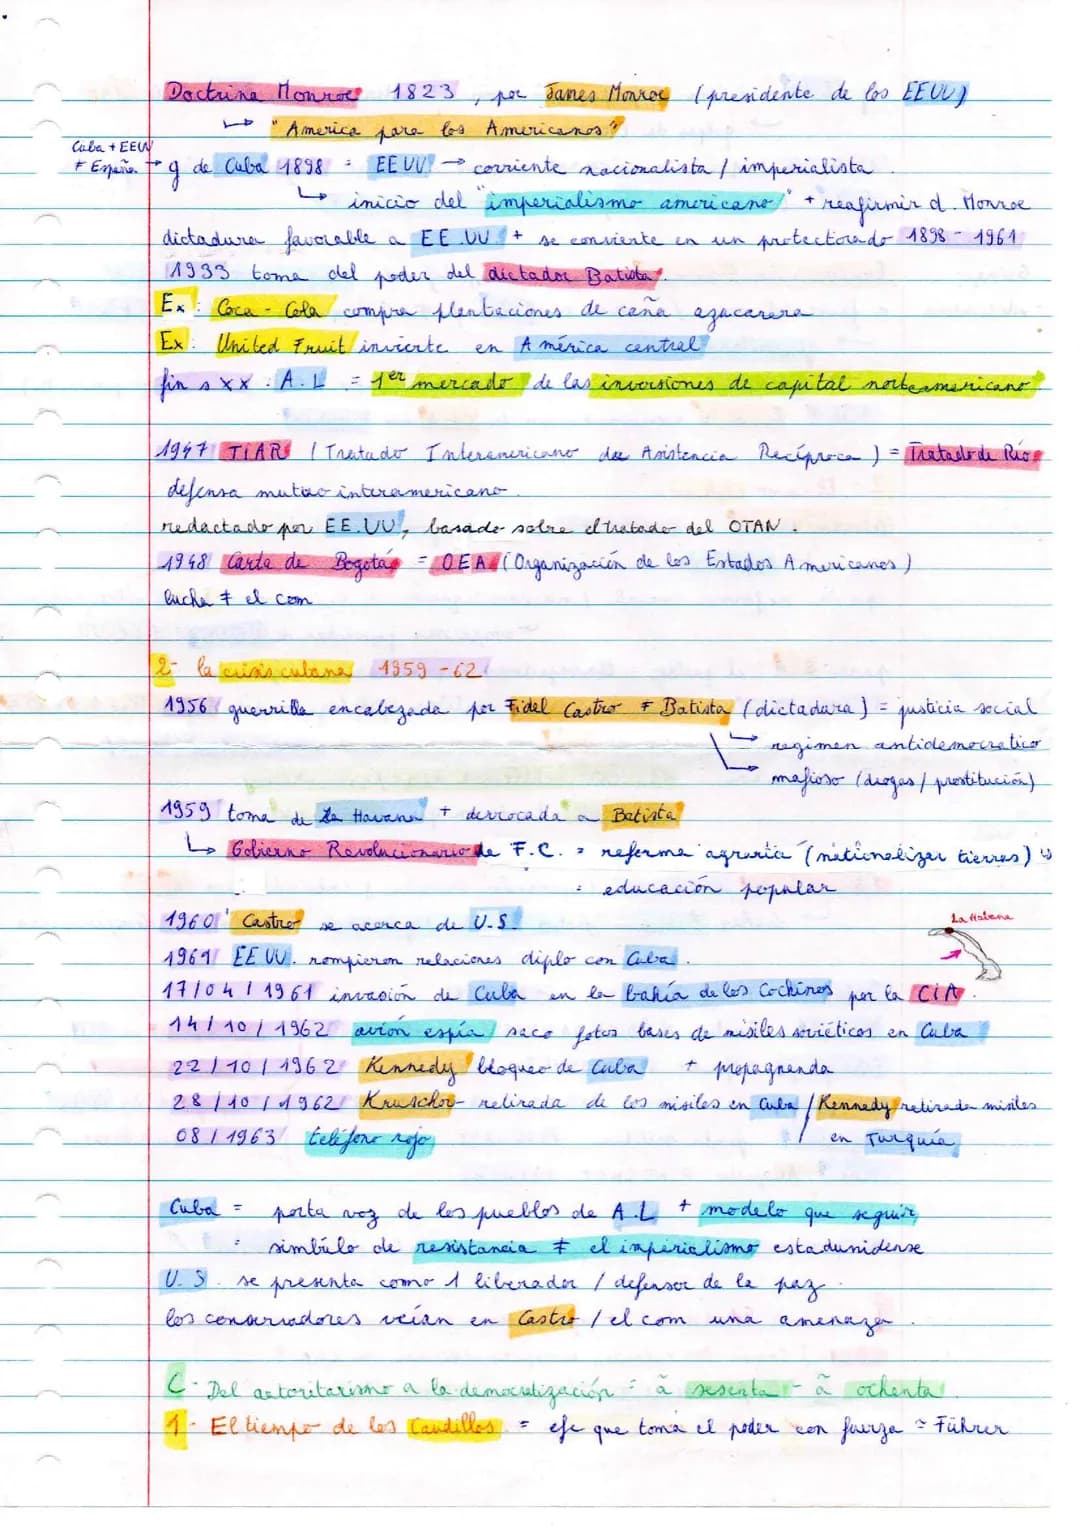 Doctrina Monroe 1823, por James Monroe (presidente de los EEUU)
↳ "America para los Americanos"
Cuba + EEUU
≠ España → g de Cuba 1898 = EEUU → corriente nacionalista / imperialista.
↳ inicio del "imperialismo americano" + reafirmir d. Monroe
dictadura favorable a EE.UU + se convierte en un protectorado 1898 - 1961
1933 toma del poder del dictador Batista.
Ex : Coca-Cola compra plantaciones de caña azucarera
Ex : United Fruit invierte en América central
fin s XX : A.L = 1er mercado de las inversiones de capital norteamericano
1947 TIAR (Tratado Interamericano de Asistencia Recíproca) = Tratado de Rio
defensa mutuo interamericano.
redactado por EE.UU, basado sobre el tratado del OTAN.
1948 Carta de Bogotá = OEA (Organización de los Estados Americanos)
lucha ≠ el com
2- la crisis cubana 1959 - 62
1956 guerrilla encabezada por Fidel Castro ≠ Batista (dictadura) = justicia social
↳ regimen antidemocratico
↳ mafioso (drogas / prostitución)
1959 toma de La Havana + derrocada a Batista
↳ Gobierno Revolucionario de F.C. = reforma agraria (nationalizar tierras)
= educación popular
1960 Castro se acerca de U.S.
La Habana
1961 EEUU. rompieron relaciones diplo con Cuba.
17/04/1961 invasión de Cuba en la bahía de los Cochinos por la CIA.
14/10/1962 avión espía saco fotos bases de misiles soviéticos en Cuba
22/10/1962 Kennedy bloqueo de Cuba + propagnanda
28/10/1962 Kruschov retirada de los misiles en Cuba / Kennedy retirada misiles
08/1963 teléfono rojo / en Turquía
Cuba = porta voz de los pueblos de A.L + modelo que seguir,
= simbúlo de resistancia ≠ el imperialismo estadunidense
U.S. se presenta como 1 liberador / defensor de la paz.
los conservadores veían en Castro / el com una amenaza.
C- Del autoritarismo a la democratización = ã sesenta - ã ochenta
1- El tiempo de los Caudillos = efe que toma el poder con fuerza ≃ Führer